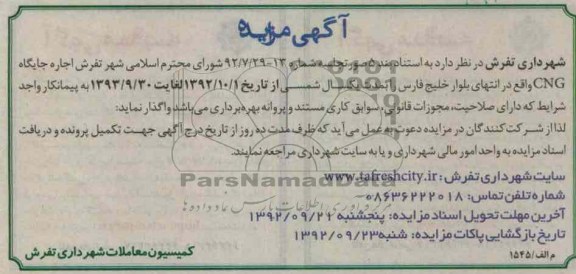 آگهی مزایده
شهرداری تفرش در نظر دارد به استناد بند ۵ صورتجلسه شماره ۱۳-۹۲/۷/۲۹ شورای محترم اسلامی شهر تفرش اجاره جایگاه
CNG واقع در انتهای بلوار خلیج فارس را به مدت یکسال شمسی از تاریخ ۱۳۹۲/۱۰/۱ لغایت ۱۳۹۳/۹/۳۰ به پیمانکار واجد
شرایط که دارای صلاحیت، مجوزات قانونی، سوابق کاری مستند و پروانه بهره‌برداری می‌باشد واگذار نماید:
لذا از شرکت کنندگان در مزایده دعوت به عمل می‌آید که ظرف مدت ده روز از تاریخ درج آگهی جهت تکمیل پرونده و دریافت
اسناد مزایده به واحد امور مالی شهرداری و یا به سایت شهرداری مراجعه نمایند.
سایت شهرداری تفرش: www.tafreshcity.ir
ParsNamadData
شماره تلفن تماس: ۰۸۶۳۶۲۲۲۰۱۸
آخرین مهلت تحویل اسناد مزایده: پنجشنبه ۱۳۹۲/۰۹/۲۱
تاریخ بازگشایی پاکات مزایده: شنبه ۱۳۹۲/۰۹/۲۳
کمیسیون معاملات شهرداری تفرش
م الف/۱۵۴۵